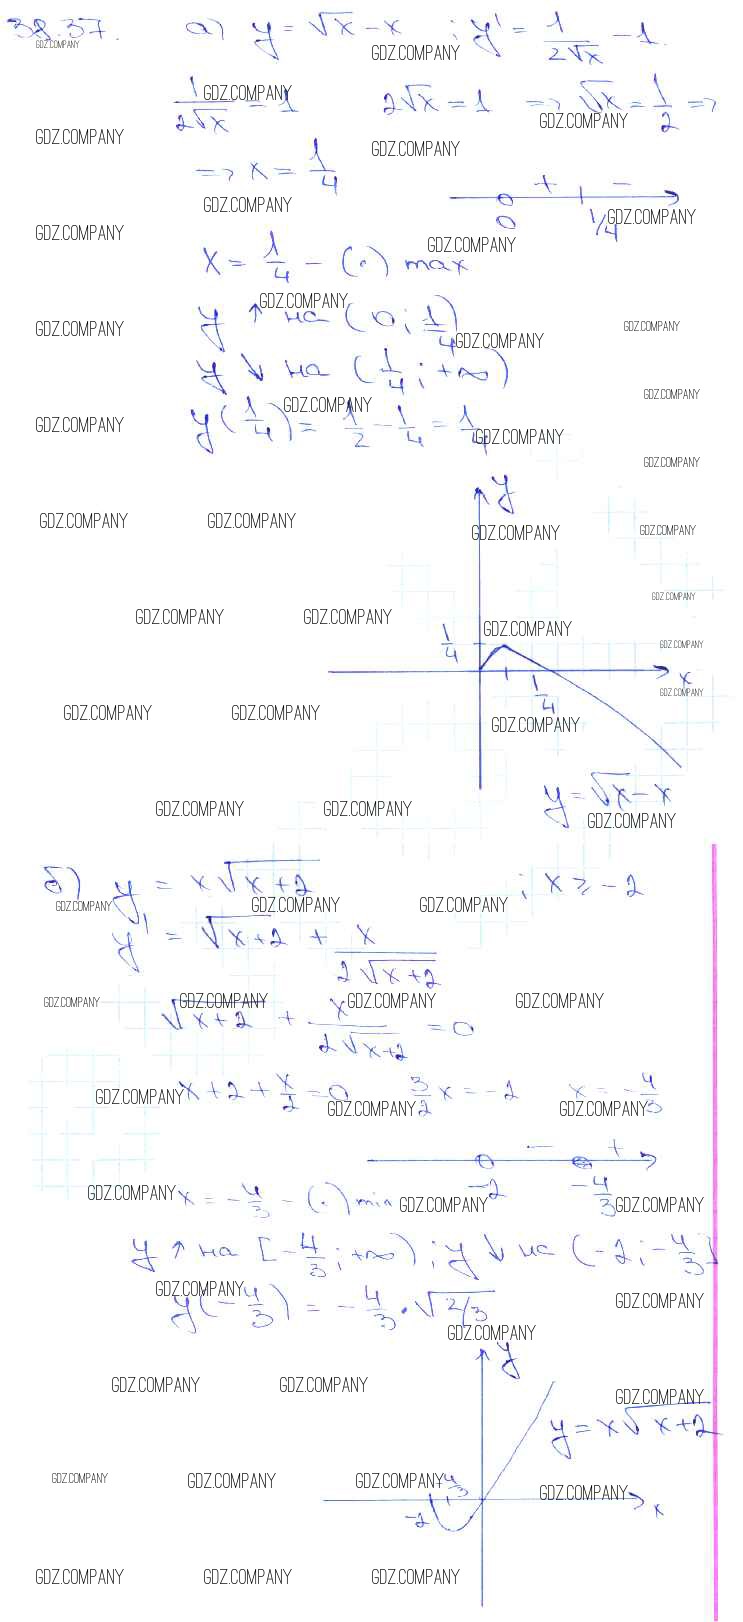 38.37. а) y = √x − x ; y' = 1/(2√x) − 1.
1/(2√x) = 1 2√x = 1 => √x = 1/2 =>
=> x = 1/4
+ −
0 1/4
x = 1/4 − (·) max
y ↑ на (0; 1/4)
y ↓ на (1/4; +∞)
y(1/4) = 1/2 − 1/4 = 1/4
y
1/4
x
1/4
y = √x − x
б) y = x√(x+2) ; x ≥ −2
y' = √(x+2) + x/(2√(x+2))
√(x+2) + x/(2√(x+2)) = 0
x + 2 + x/2 = 0 3/2 x = −2 x = −4/3
− +
−2 −4/3
x = −4/3 − (·) min
y ↑ на [−4/3; +∞) ; y ↓ на (−2; −4/3]
y(−4/3) = −4/3 · √(2/3)
y
y = x√(x+2)
−4/3
−2
x
GDZ.COMPANY